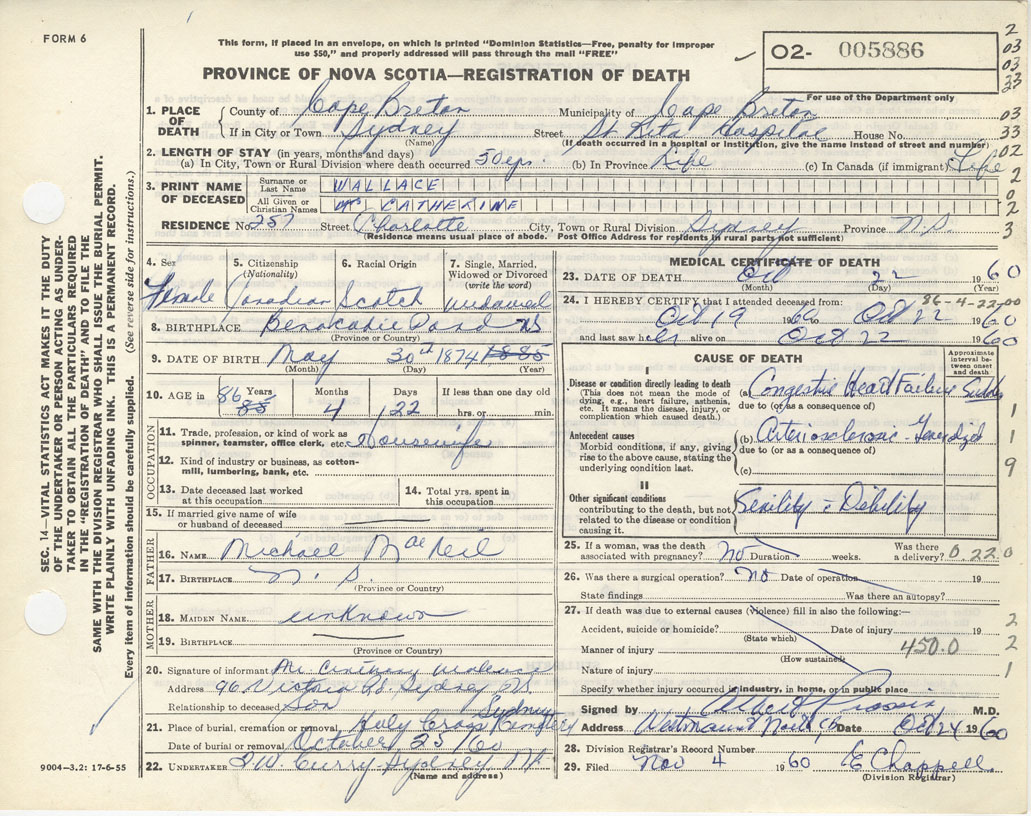 FORM 6
This form, if placed in an envelope, on which is printed "Dominion Statistics—Free, penalty for improper
use $50," and properly addressed will pass through the mail "FREE"
PROVINCE OF NOVA SCOTIA—REGISTRATION OF DEATH
O2- 005886
For use of the Department only
2
03
03
33
03
33
02
2
2
3
1. PLACE OF DEATH { County of Cape Breton Municipality of Cape Breton
If in City or Town Sydney Street St Rita Hospital House No.
(Name) (If death occurred in a hospital or Institution, give the name instead of street and number)
2. LENGTH OF STAY (in years, months and days)
(a) In City, Town or Rural Division where death occurred 50 (b) In Province Life (c) In Canada (if immigrant) Life
3. PRINT NAME OF DECEASED
Surname or Last Name WALLACE
All Given or Christian Names CATHERINE
RESIDENCE No. 257 Street Charlotte City, Town or Rural Division Sydney Province N.S.
(Residence means usual place of abode. Post Office Address for residents in rural parts not sufficient)
4. Sex Female
5. Citizenship (Nationality) Canadian
6. Racial Origin Scotch
7. Single, Married, Widowed or Divorced (write the word) widowed
8. BIRTHPLACE Benacadie Pond NS
(Province or Country)
9. DATE OF BIRTH May 30th 1874 1885
(Month) (Day) (Year)
10. AGE in 86 85 Years 4 Months 22 Days If less than one day
hrs. or min.
OCCUPATION
11. Trade, profession, or kind of work as
spinner, teamster, office clerk, etc. Housewife
12. Kind of industry or business, as cotton-
mill, lumbering, bank, etc.
13. Date deceased last worked
at this occupation
14. Total yrs. spent in
this occupation
15. If married give name of wife
or husband of deceased
FATHER
16. NAME Michael MacNeil
17. BIRTHPLACE N.S.
(Province or Country)
MOTHER
18. MAIDEN NAME unknown
19. BIRTHPLACE
(Province or Country)
20. Signature of informant Wallace
Address 96 Victoria Rd. Sydney NS
Relationship to deceased Son
21. Place of burial, cremation or removal Holy Cross Cemetery Sydney
Date of burial or removal October 25 60
22. UNDERTAKER Curry Sydney N.S.
(Name and address)
MEDICAL CERTIFICATE OF DEATH
23. DATE OF DEATH Oct 22 1960
(Month) (Day) (Year)
86-4-22-00
24. I HEREBY CERTIFY that I attended deceased from:
Oct 19 1960 to Oct 22 1960
and last saw her alive on Oct 22 1960
CAUSE OF DEATH
Approximate interval between onset and death
I
Disease or condition directly leading to death
(This does not mean the mode of
dying, e.g., heart failure, asthenia,
etc. It means the disease, injury, or
complication which caused death.)
(a) Congestive Heart Failure Sudden
due to (or as a consequence of)
Antecedent causes
Morbid conditions, if any, giving
rise to the above cause, stating the
underlying condition last.
(b) Arteriosclerosis - Generalized
due to (or as a consequence of)
(c)
1
1
9
II
Other significant conditions
contributing to the death, but not
related to the disease or condition
causing it.
Senility - Debility
25. If a woman, was the death
associated with pregnancy? No Duration weeks. Was there
a delivery? 0.22.0
26. Was there a surgical operation? No Date of operation 19
State findings Was there an autopsy?
27. If death was due to external causes (Violence) fill in also the following:—
Accident, suicide or homicide? Date of injury 19 2
(State which)
Manner of injury 450.0 2
(How sustained)
Nature of injury 1
Specify whether injury occurred in industry, in home, or in public place
Signed by M.D.
Address Westmount Date Oct 24 1960
28. Division Registrar's Record Number
29. Filed Nov 4 1960 E Chappell
(Division Registrar)
SEC. 14—VITAL STATISTICS ACT MAKES IT THE DUTY
OF THE UNDERTAKER OR PERSON ACTING AS UNDER-
TAKER TO OBTAIN ALL THE PARTICULARS REQUIRED
IN THE "REGISTRATION OF DEATH" AND TO FILE THE
SAME WITH THE DIVISION REGISTRAR WHO SHALL ISSUE THE BURIAL PERMIT.
WRITE PLAINLY WITH UNFADING INK. THIS IS A PERMANENT RECORD.
Every item of information should be carefully supplied. (See reverse side for instructions.)
9004-3.2: 17-6-55